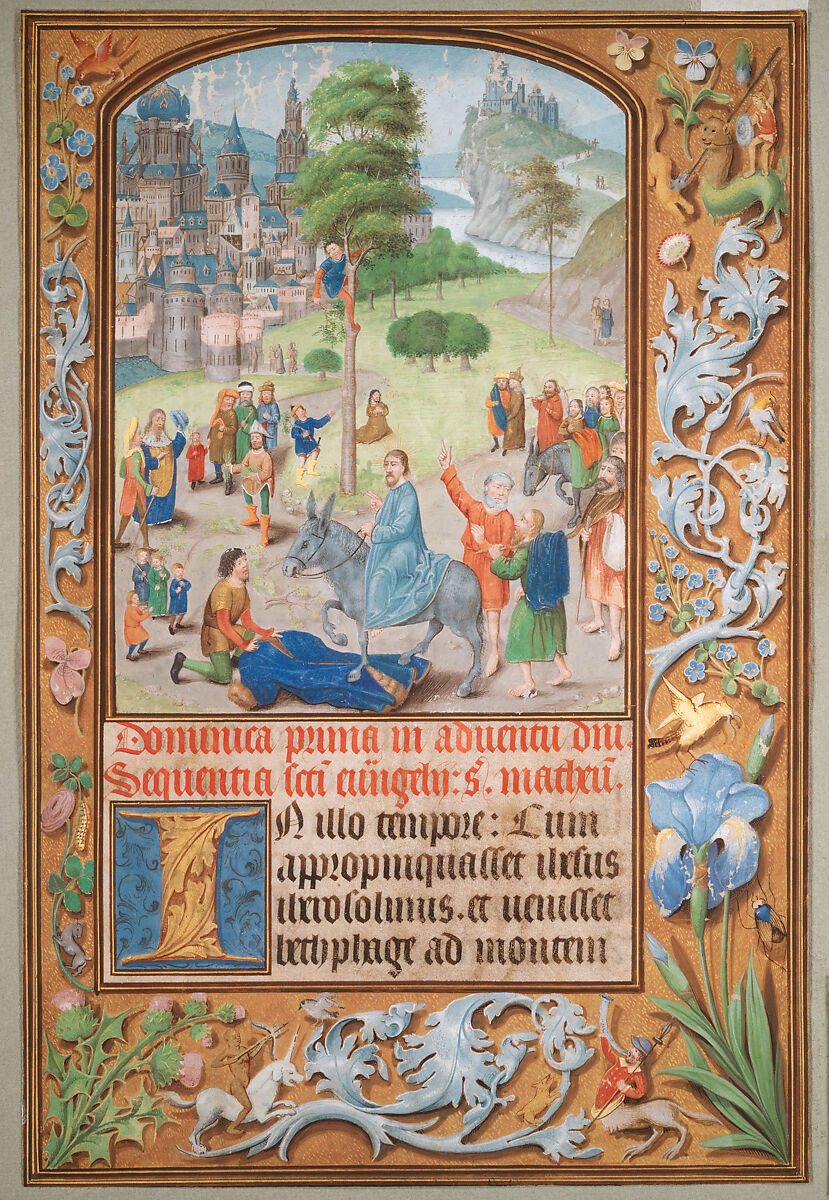 Dominica prima in aduentu dni.
Sequentia scti euūgelij: s. matheū.
IN illo tempore: Cum
appropinquasset ihesus
iherosolimis. et uenisset
bethphage ad montem